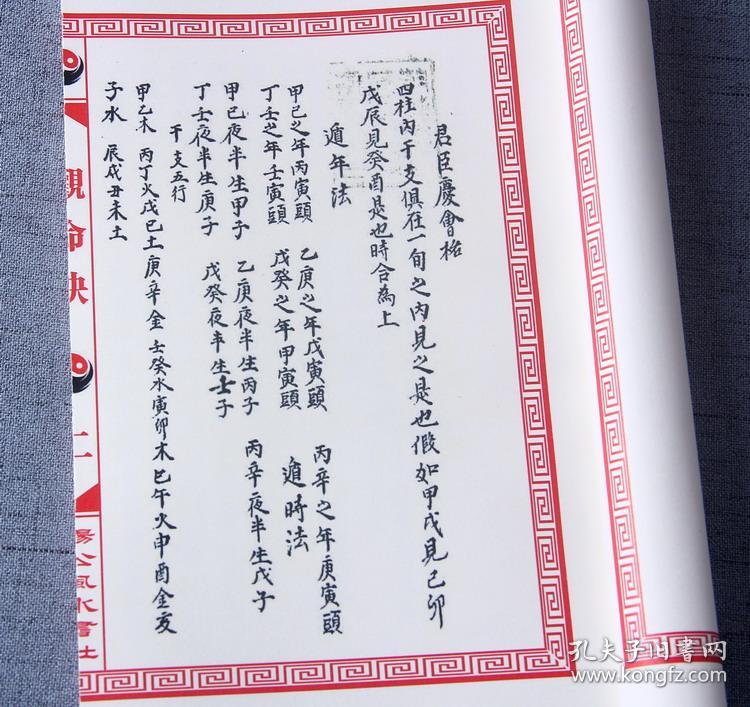 君臣慶會格
四柱內干支俱在一旬之內見之是也假如甲戌見己卯
戊辰見癸酉是也時合為上
遁年法
甲己之年丙寅頭 乙庚之年戊寅頭 丙辛之年庚寅頭
丁壬之年壬寅頭 戊癸之年甲寅頭 遁時法
甲己夜半生甲子 乙庚夜半生丙子 丙辛夜半生戊子
丁壬夜半生庚子 戊癸夜半生士子
干支五行
甲乙木 丙丁火戊己土庚辛金壬癸水寅卯木巳午火申酉金亥
子水 辰戌丑未土
觀命訣
二
楊公風水書社
孔夫子旧書网
www.kongfz.com